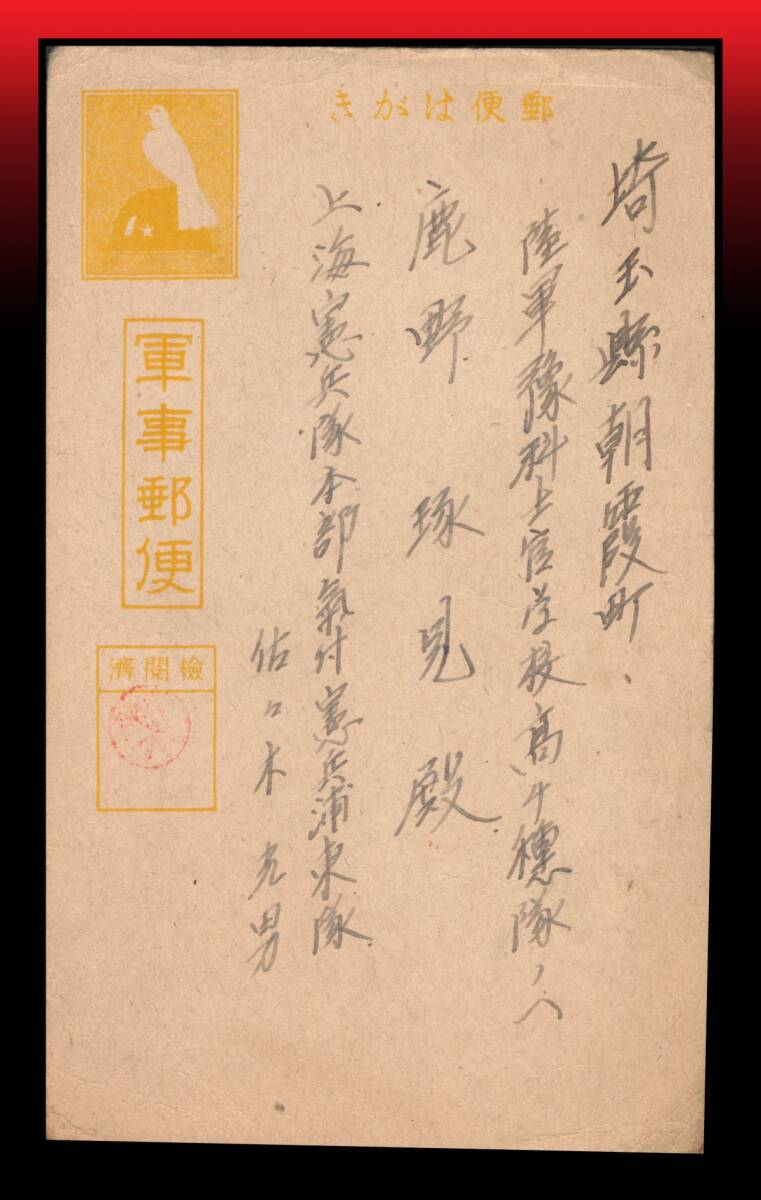 郵便はがき
埼玉縣朝霞町、
陸軍豫科士官学校高千穂隊ノ八
鹿野琢見殿
上海憲兵隊本部氣付憲兵浦東隊
佐々木克男
軍事郵便
檢閲濟